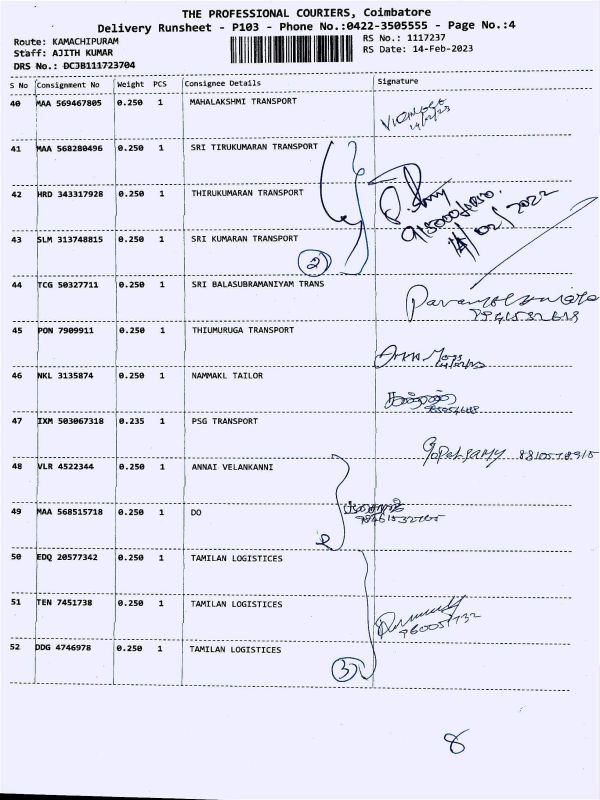 THE PROFESSIONAL COURIERS, Coimbatore
Delivery Runsheet - P103 - Phone No.:0422-3505555 - Page No.:4
Route: KAMACHIPURAM RS No.: 1117237
Staff: AJITH KUMAR RS Date: 14-Feb-2023
DRS No.: DCJB111723704
S No Consignment No Weight PCS Consignee Details Signature
40 MAA 569467805 0.250 1 MAHALAKSHMI TRANSPORT
14/02/23
41 MAA 568280496 0.250 1 SRI TIRUKUMARAN TRANSPORT
42 HRD 343317928 0.250 1 THIRUKUMARAN TRANSPORT
14/02/2022
43 SLM 313748815 0.250 1 SRI KUMARAN TRANSPORT
2
44 TCG 50327711 0.250 1 SRI BALASUBRAMANIYAM TRANS
45 PON 7909911 0.250 1 THIUMURUGA TRANSPORT
46 NKL 3135874 0.250 1 NAMMAKL TAILOR
47 IXM 503067318 0.235 1 PSG TRANSPORT
48 VLR 4522344 0.250 1 ANNAI VELANKANNI
49 MAA 568515718 0.250 1 DO
50 EDQ 20577342 0.250 1 TAMILAN LOGISTICES
51 TEN 7451738 0.250 1 TAMILAN LOGISTICES
52 DDG 4746978 0.250 1 TAMILAN LOGISTICES
3
8